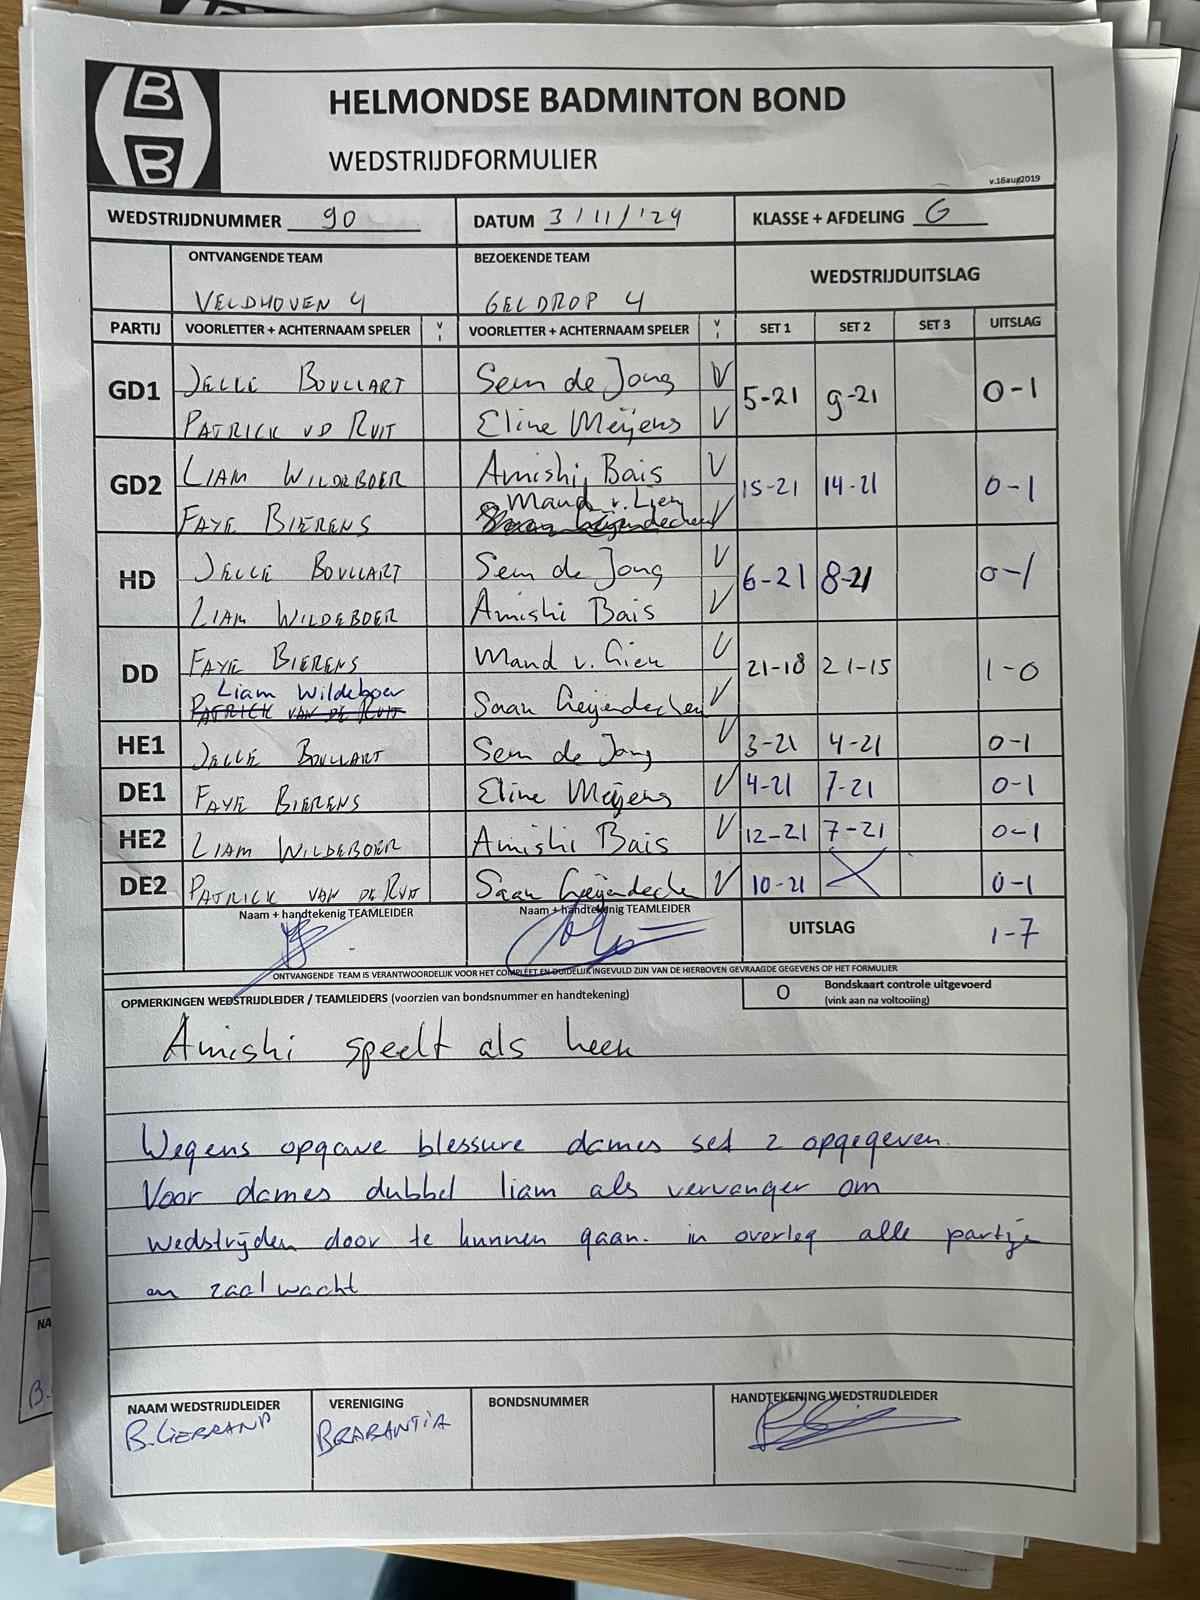 B
B
HELMONDSE BADMINTON BOND
WEDSTRIJDFORMULIER
v.16aug2019
WEDSTRIJDNUMMER 90 DATUM 3/11/'24 KLASSE + AFDELING G
ONTVANGENDE TEAM BEZOEKENDE TEAM WEDSTRIJDUITSLAG
VELDHOVEN 4 GELDROP 4
PARTIJ VOORLETTER + ACHTERNAAM SPELER V I VOORLETTER + ACHTERNAAM SPELER V I SET 1 SET 2 SET 3 UITSLAG
GD1 JELLE BOULLART Sem de Jong V 5-21 9-21 0-1
PATRICK VD RUIT Eline Meijens V
GD2 LIAM WILDEBOER Amishi Bais V 15-21 14-21 0-1
FAYE BIERENS Maud v. Lien V
HD JELLE BOULLART Sem de Jong V 6-21 8-21 0-1
LIAM WILDEBOER Amishi Bais V
DD FAYE BIERENS Maud v. Lien V 21-18 21-15 1-0
Liam Wildeboer
PATRICK VAN DE RUIT Saar V
HE1 JELLE BOULLART Sem de Jong V 3-21 4-21 0-1
DE1 FAYE BIERENS Eline Meijens V 4-21 7-21 0-1
HE2 LIAM WILDEBOER Amishi Bais V 12-21 7-21 0-1
DE2 PATRICK VAN DE RUIT Saar V 10-21 0-1
Naam + handtekenig TEAMLEIDER Naam + handtekenig TEAMLEIDER UITSLAG 1-7
ONTVANGENDE TEAM IS VERANTWOORDELIJK VOOR HET COMPLEET EN DUIDELIJK INGEVULD ZIJN VAN DE HIERBOVEN GEVRAAGDE GEGEVENS OP HET FORMULIER
OPMERKINGEN WEDSTRIJDLEIDER / TEAMLEIDERS (voorzien van bondsnummer en handtekening) O Bondskaart controle uitgevoerd
(vink aan na voltooiing)
Amishi speelt als heer
Wegens opgave blessure dames set 2 opgegeven.
Voor dames dubbel liam als vervanger om
wedstrijden door te kunnen gaan. in overleg alle partije
en zaalwacht
NAAM WEDSTRIJDLEIDER VERENIGING BONDSNUMMER HANDTEKENING WEDSTRIJDLEIDER
B. LIEBRAND BRABANTIA
NA
B.